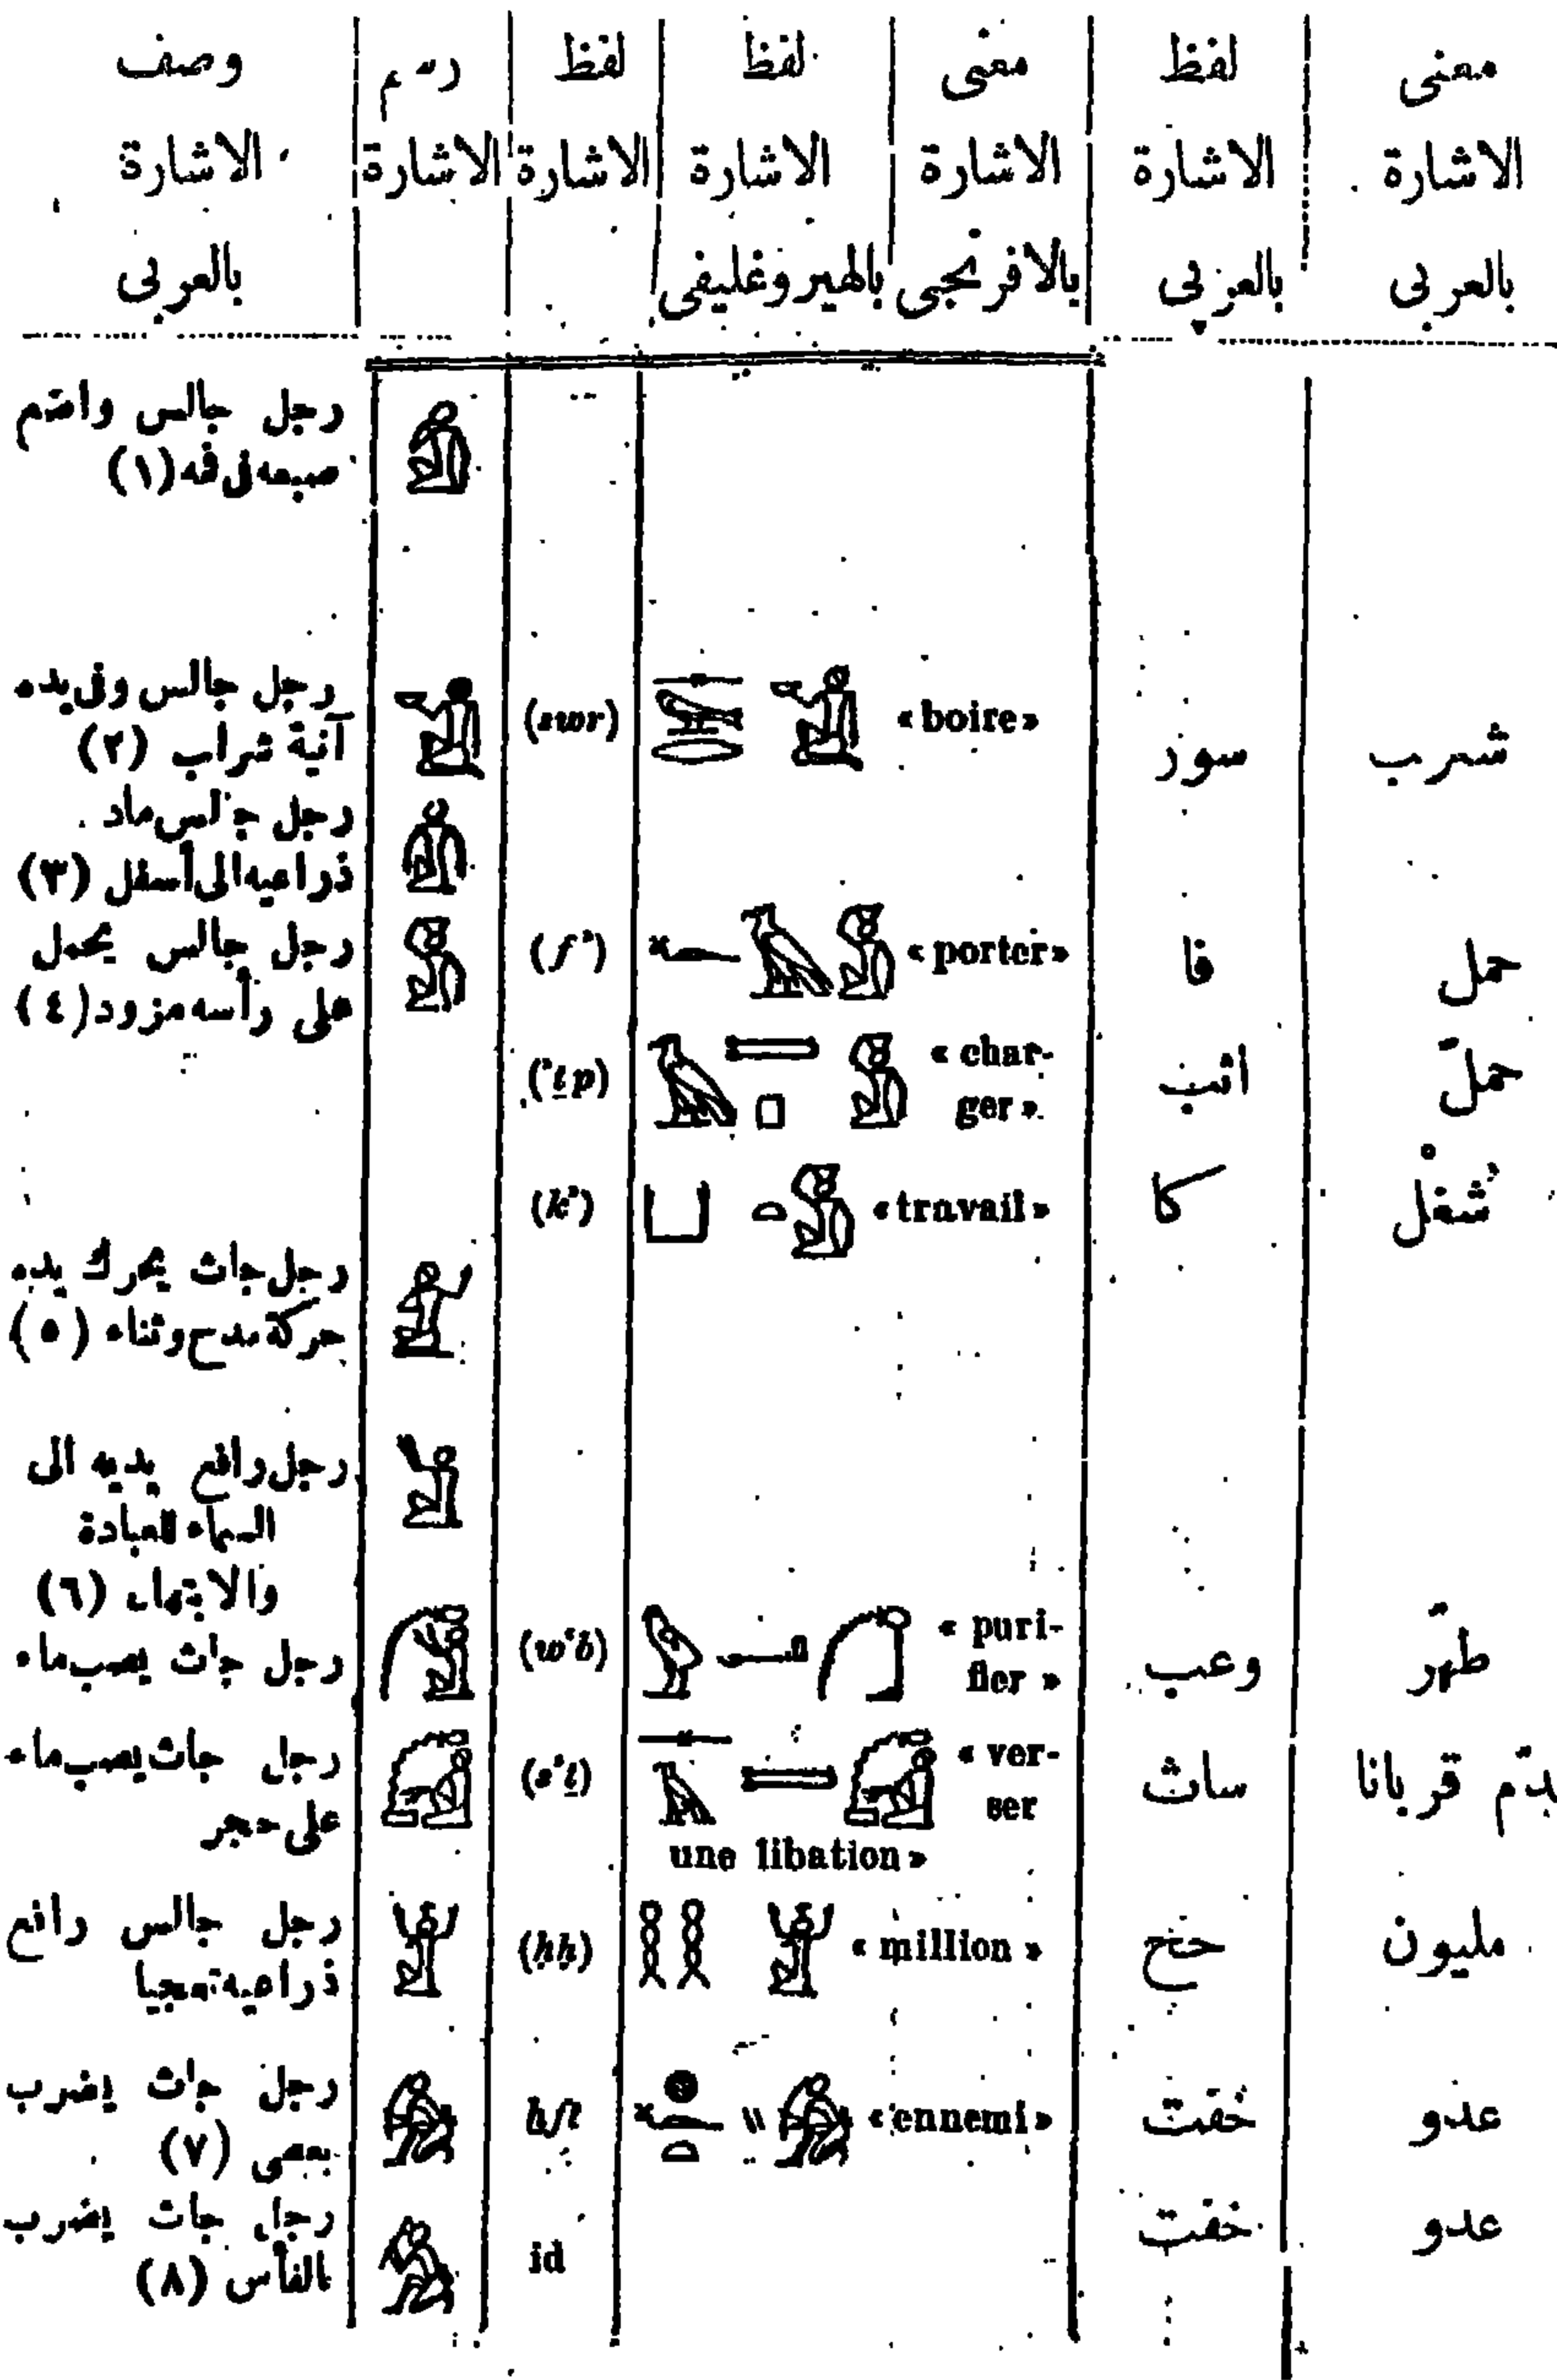 معنى | لفظ | معنى | لفظ | لفظ | رسم | وصف
الاشارة | الاشارة | الاشارة | الاشارة | الاشارة | الاشارة | الاشارة
بالعربى | بالعربى | بالافرنجى | بالهيروغليفى | بالعربى
رجل جالس واضع
صبعه فى فمه (١)
رجل جالس وفى يده
آنية شراب (٢)
(swr) «boire» سور شرب
رجل جالس ماد
ذراعيه الى أسفل (٣)
رجل جالس يحمل
على رأسه مزود (٤)
(fꜣ) «porter» فا حمل
(ꜣṯp) «char-
ger» اثب حمّل
(kꜣ) «travail» كا شُغْل
رجل جاث يحرك يده
حركة مدح وثناء (٥)
رجل رافع يديه الى
السماء للعبادة
والابتهال (٦)
رجل جاث يصب ماء
(wꜥb) «puri-
fier» وعب طهّر
رجل جاث يصب ماء
على حجر
(sꜣṯ) «ver-
ser
une libation» ساث قربانا
رجل جالس رافع
ذراعيه تعجبا
(ḥḥ) «million» حح مليون
رجل جاث يضرب
بعصى (٧)
ḫft «ennemi» خفت عدو
رجل جاث يضرب
بالفأس (٨)
id خفت عدو